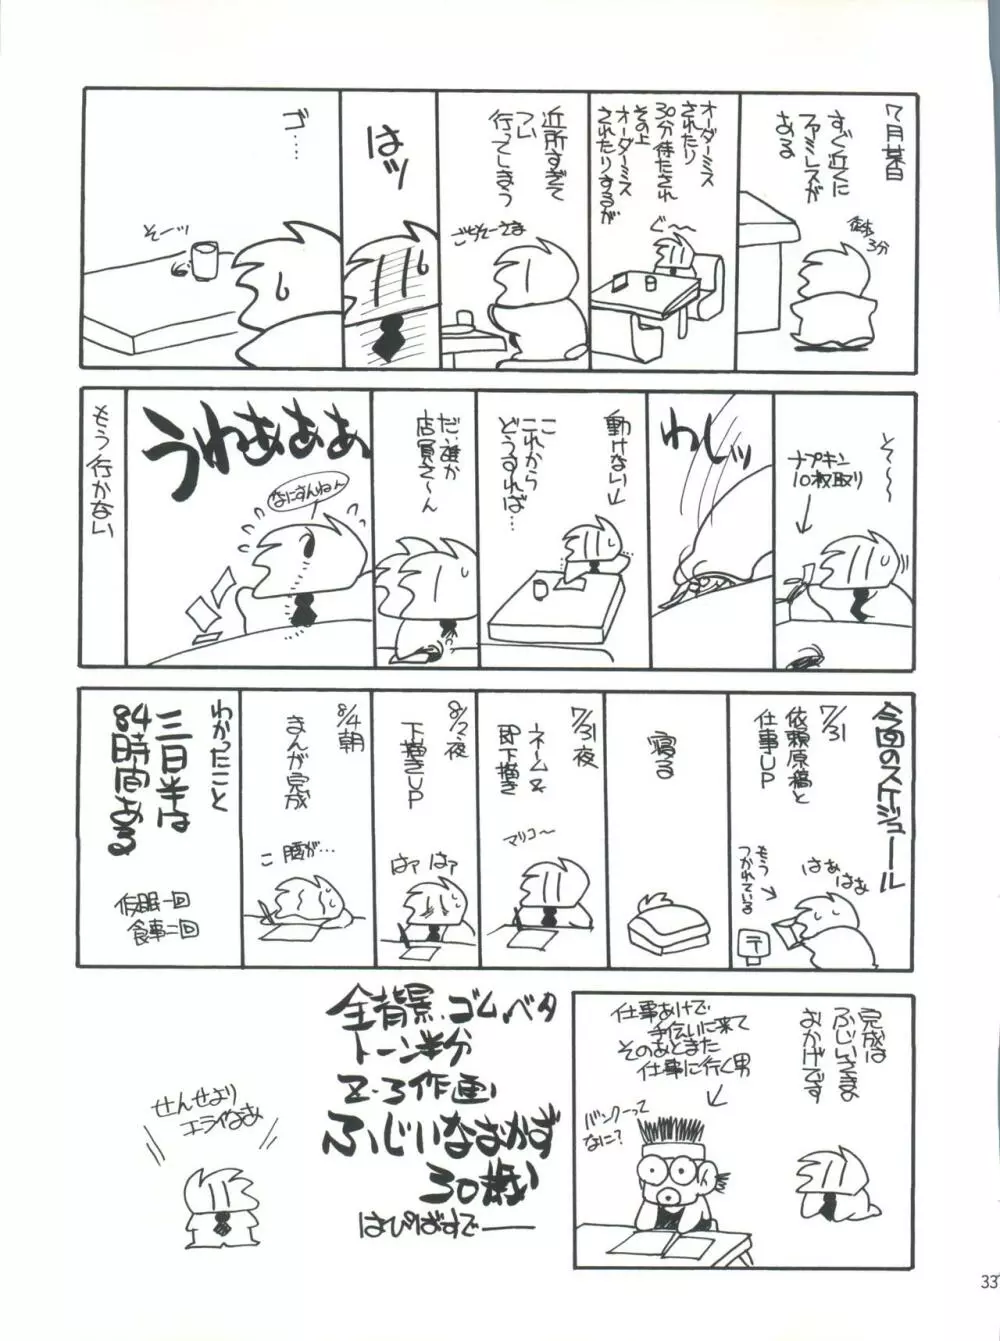 7月某日
すぐ近くに
ファミレスが
ある
徒歩
3分
オーダーミス
されたり
30分待たされ
その上
オーダーミス
されたりするが
ぐ～～
近所すぎて
つい
行ってしまう
ごちそーさま
はッ
ゴ…
そーッ
そ～～
ナプキン
10枚取り
わしッ
動けない
これから
どうすれば…
だ、誰か
店員さ～ん
うわあああ
なにすんねん
もう行かない
今回のスケジュール
7/31
依頼原稿と
仕事UP
はぁはぁ
もう
つかれている
〒
寝る
7/31夜
ネーム&
即下描き
マリコ～
8/2夜
下描きUP
はァはァ
8/4朝
まんが完成
こ腰が…
わかったこと
三日半は
84時間ある
仮眠一回
食事二回
完成は
ふじいさまの
おかげです
仕事あけで
手伝いに来て
そのあとまた
仕事に行く男
バンクーって
なに?
全背景、ゴム、ベタ
トーン半分
2・3作画
ふじいなおかず
30歳
はぴばすでー
せんせより
エライなあ
33